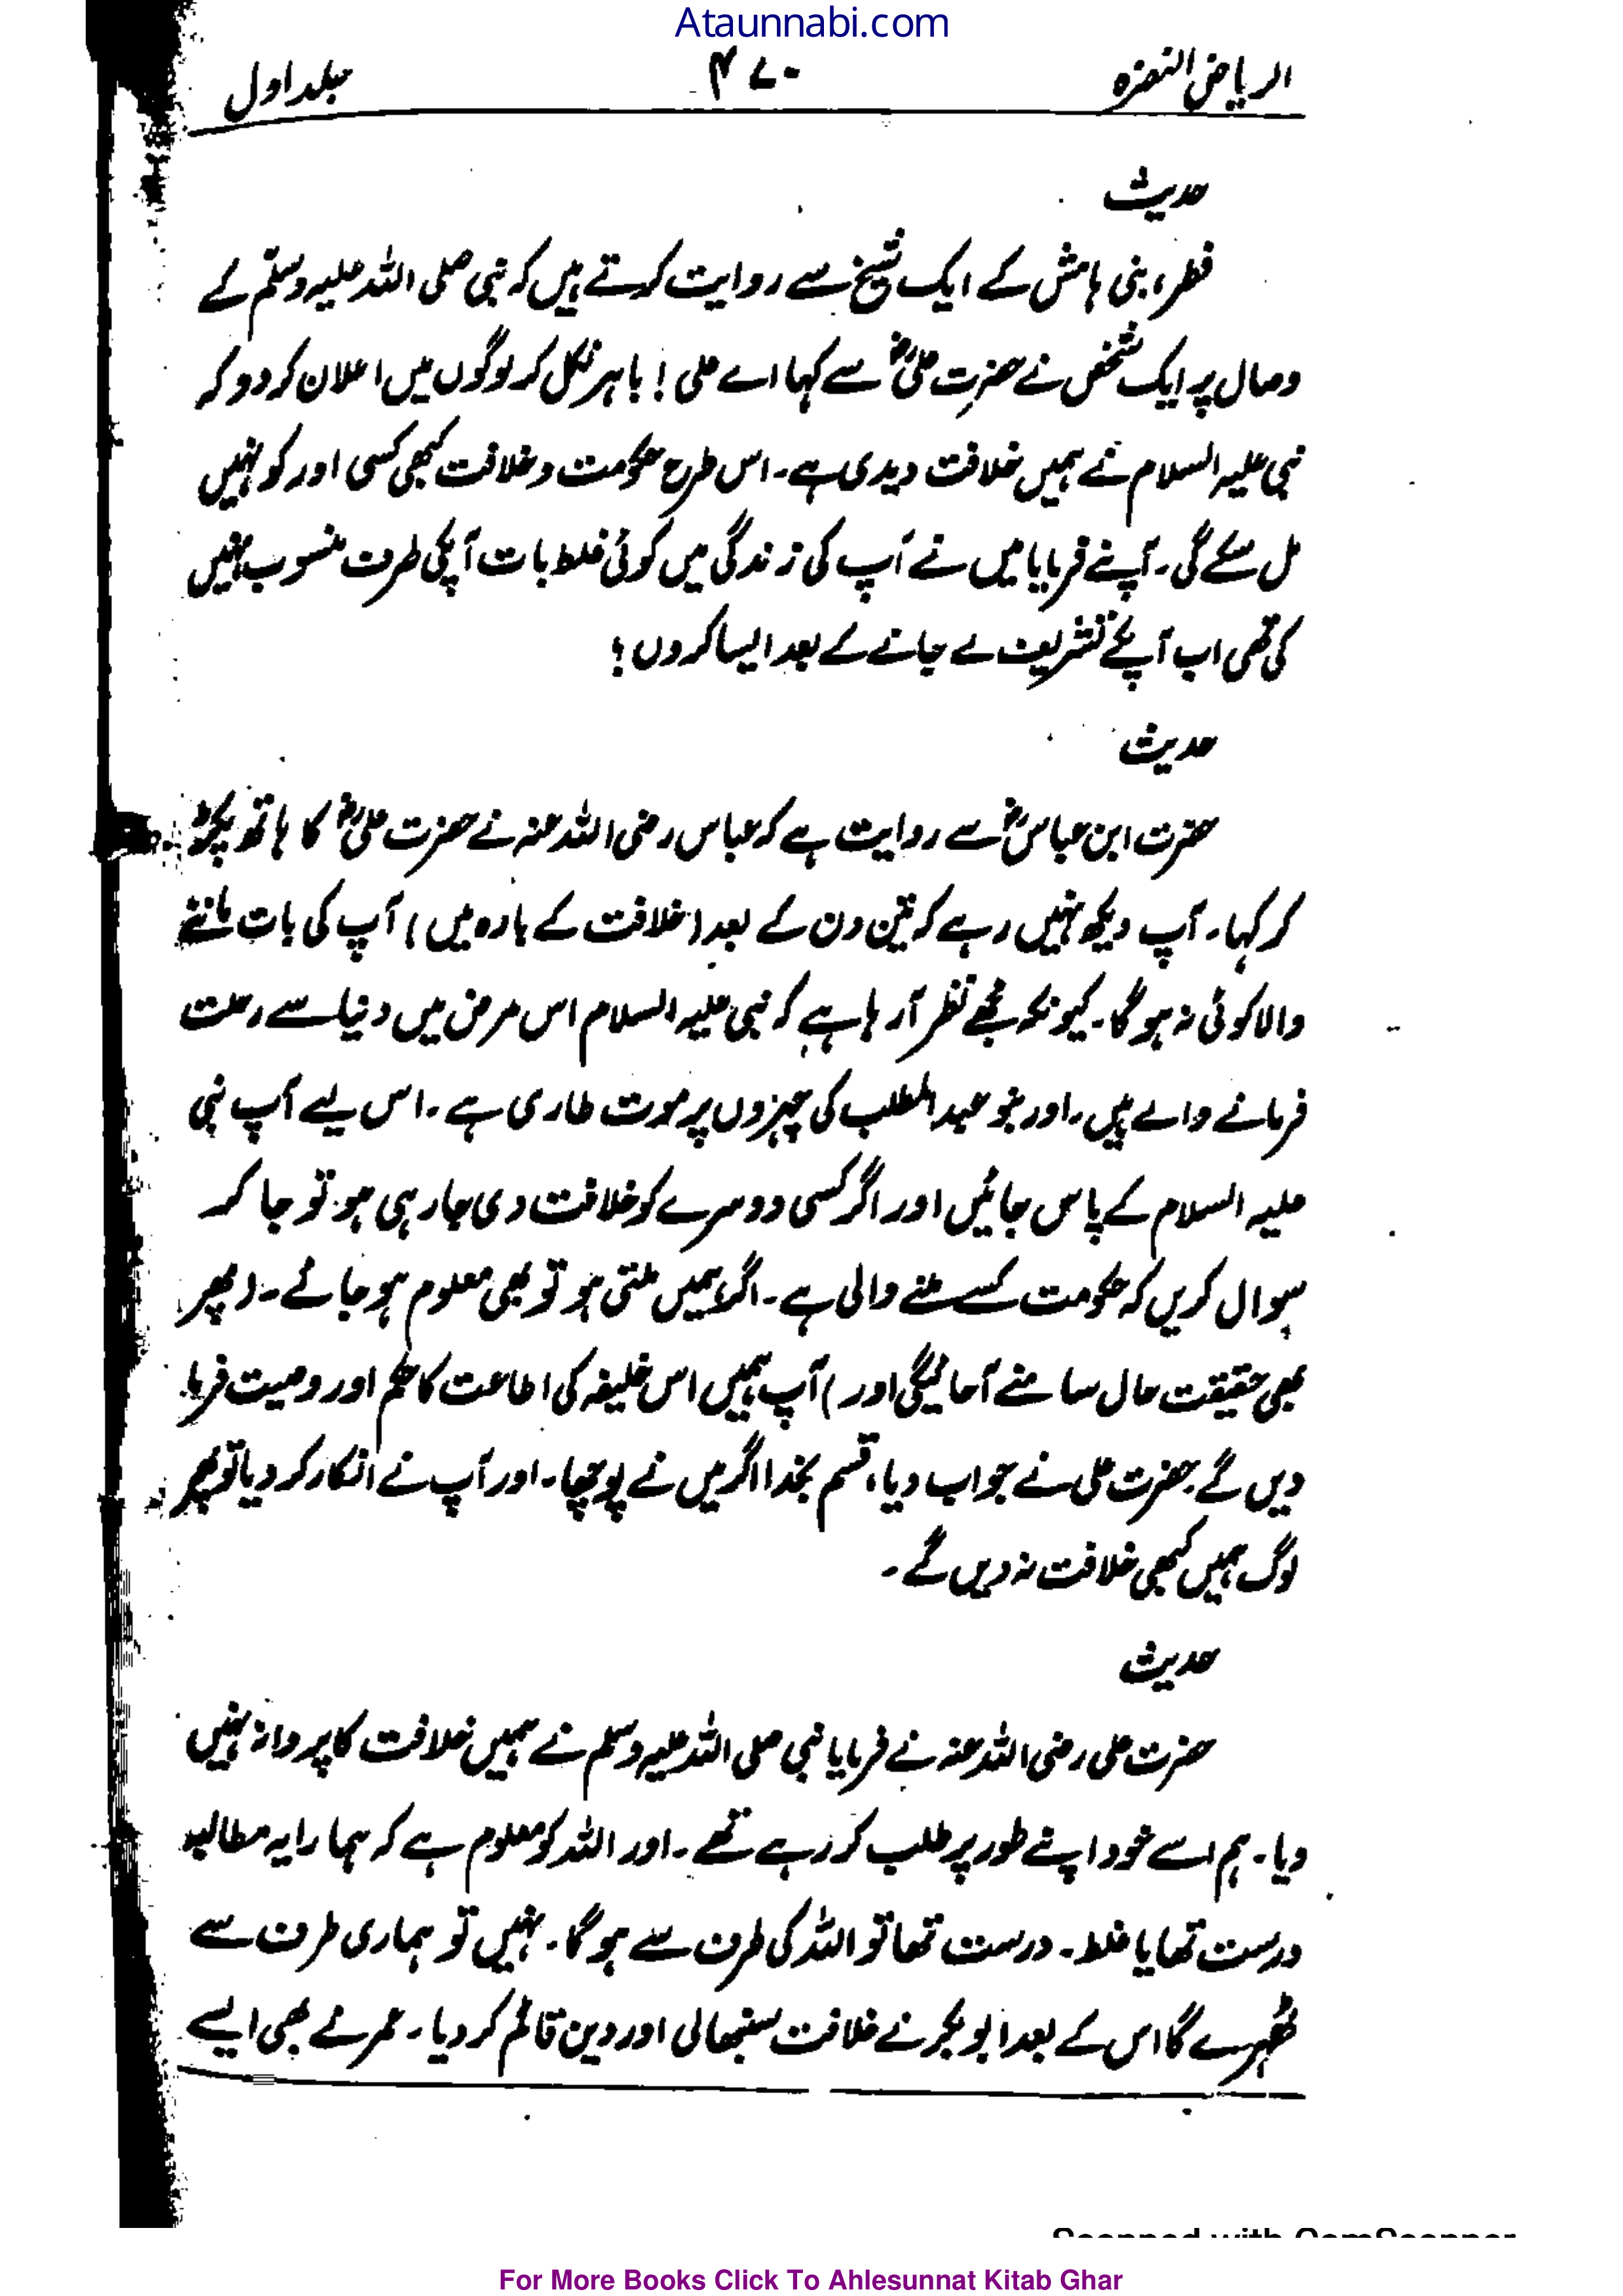 Ataunnabi.com
الریاض النضرہ ۴۷۰ جلد اول
حدیث
فطر، بنی ہاشم کے ایک شیخ سے روایت کرتے ہیں کہ نبی صلی اللہ علیہ وسلّم کے
وصال پر ایک شخص نے حضرت علیؓ سے کہا اے علی! باہر نکل کر لوگوں میں اعلان کر دو کہ
نبی علیہ السلام نے ہمیں خلافت دیدی ہے۔ اس طرح حکومت و خلافت کبھی کسی اور کو نہیں
مل سکے گی۔ آپنے فرمایا میں نے آپ کی زندگی میں کوئی غلط بات آپکی طرف منسوب نہیں
کی تھی اب آپکے تشریف لے جانے کے بعد ایسا کروں؟
حدیث
حضرت ابن عباسؓ سے روایت ہے کہ عباس رضی اللہ عنہ نے حضرت علیؓ کا ہاتھ پکڑ
کر کہا۔ آپ دیکھ نہیں رہے کہ تین دن کے بعد (خلافت کے بارہ میں) آپ کی بات ماننے
والا کوئی نہ ہو گا۔ کیونکہ مجھے نظر آ رہا ہے کہ نبی علیہ السلام اس مرض میں دنیا سے رحلت
فرمانے والے ہیں۔ اور بنو عبدالمطلب کی چہروں پر موت طاری ہے۔ اس لیے آپ نبی
علیہ السلام کے پاس جائیں اور اگر کسی دوسرے کو خلافت دی جا رہی ہو تو جا کر
سوال کریں کہ حکومت کسے ملنے والی ہے۔ اگر ہمیں ملتی ہو تو بھی معلوم ہو جائے۔ (پھر
بھی حقیقت حال سامنے آجائیگی اور) آپ ہمیں اس خلیفہ کی اطاعت کا حکم اور وصیت فرما
دیں گے۔ حضرت علی نے جواب دیا، قسم بخدا اگر میں نے پوچھا۔ اور آپ نے انکار کر دیا تو پھر
لوگ ہمیں کبھی خلافت نہ دیں گے۔
حدیث
حضرت علی رضی اللہ عنہ نے فرمایا نبی صلی اللہ علیہ وسلم نے ہمیں خلافت کا پروانہ نہیں
دیا۔ ہم اسے خود اپنے طور پر طلب کر رہے تھے۔ اور اللہ کو معلوم ہے کہ ہمارا یہ مطالبہ
درست تھا یا غلط۔ درست تھا تو اللہ کی طرف سے ہو گا۔ نہیں تو ہماری طرف سے
ٹھہرے گا اس کے بعد ابوبکر نے خلافت سنبھالی اور دین قائم کر دیا۔ عمر نے بھی ایسے
Scanned with CamScanner
For More Books Click To Ahlesunnat Kitab Ghar